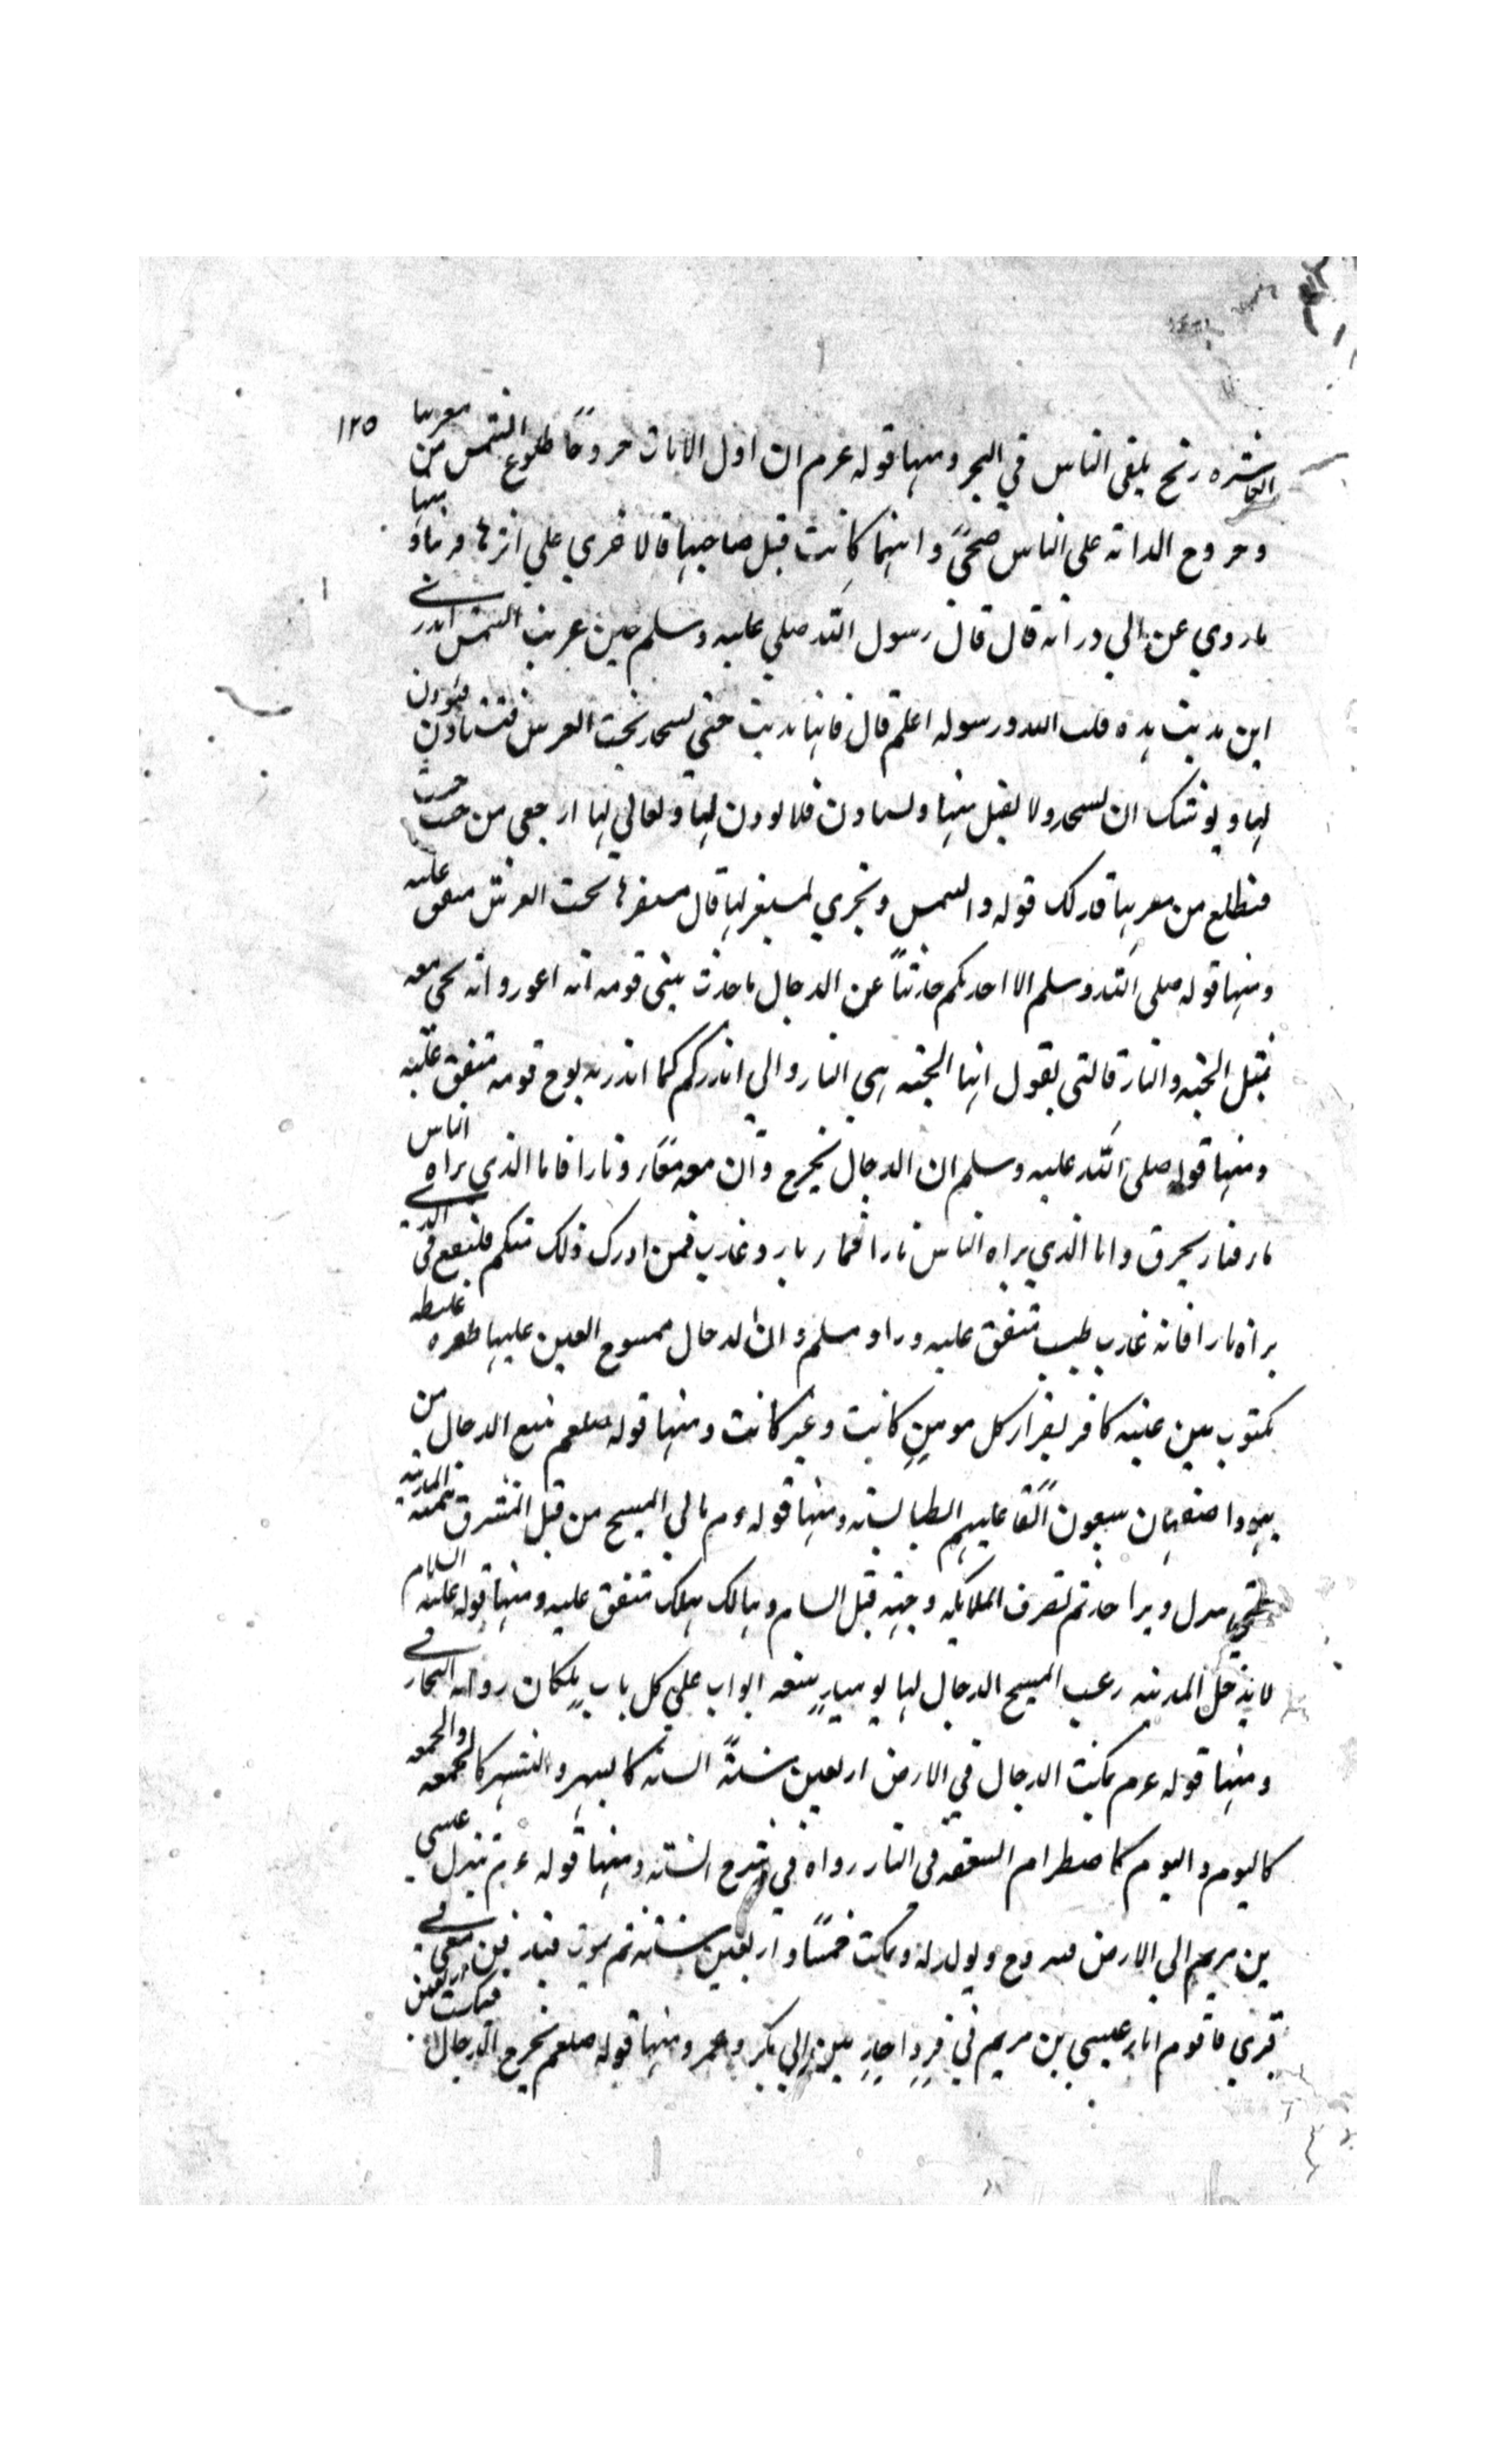 ١٢٥
العاشره ريح يلقى الناس في البحر ومنها قوله عرم ان اول الايات خروجًا طلوع الشمس من مغربها
وخروج الدابه على الناس ضحىً وايتهما كانت قبل صاحبتها فالاخري علي اثرها قريبا ومنها
ما روي عن ابي ذر انه قال قال رسول الله صلي عليه وسلم حين غربت الشمس اتدري
اين تذهب هذه قلت الله ورسوله اعلم قال فانها تذهب حتي تسجد تحت العرش فتستاذن فيوذن
لها ويوشك ان تسجد ولا يقبل منها وتستاذن فلا يوذن لها وتعالي لها ارجعي من حيث جئت
فتطلع من مغربها فذلك قوله والشمس وتجري لمستقر لها قال مستقرها تحت العرش متفق عليه
ومنها قوله صلى الله وسلم الا احدثكم حديثًا عن الدجال ما حدث نبي قومه انه اعور وانه يجي معه
بمثل الجنه والنار فالتي يقول انها الجنه هي النار واني انذركم كما انذر به نوح قومه متفق عليه
ومنها قوله صلى الله عليه وسلم ان الدجال يخرج وان معه ماء ونارا فاما الذي يراه الناس
ماء فنار يحرق واما الذي يراه الناس نارا فماء بارد وعذب فمن ادرك ذلك منكم فليقع في الذي
يراه نارا فانه عذب طيب متفق عليه وزاد مسلم وان الدجال ممسوح العين عليها ظفره غليظه
مكتوب بين عينيه كافر يقرا كل مومن كاتب وغير كاتب ومنها قوله صلعم يتبع الدجال من
يهود اصفهان سبعون الفا عليهم الطيالسه ومنها قوله عرم ياتي المسيح من قبل المشرق همته المدينه
حتي ينزل دبر احد ثم تصرف الملايكه وجهه قبل الشام وهنالك يهلك متفق عليه ومنها قوله عليه السلام
لا يدخل المدينه رعب المسيح الدجال لها يوميذ سبعه ابواب علي كل باب ملكان رواه البخاري
ومنها قوله عرم يمكث الدجال في الارض اربعين سنةً السنه كالشهر والشهر كالجمعه والجمعه
كاليوم واليوم كاضطرام السعفه في النار رواه في شرح السنه ومنها قوله عرم ينزل عيسي
بن مريم الي الارض فيتزوج ويولد له ويمكث خمسًا واربعين سنه ثم يموت فيدفن معي في
قبري فاقوم انا وعيسي بن مريم في قبر واحد بين ابي بكر وعمر ومنها قوله صلعم يخرج الدجال فيمكث اربعين